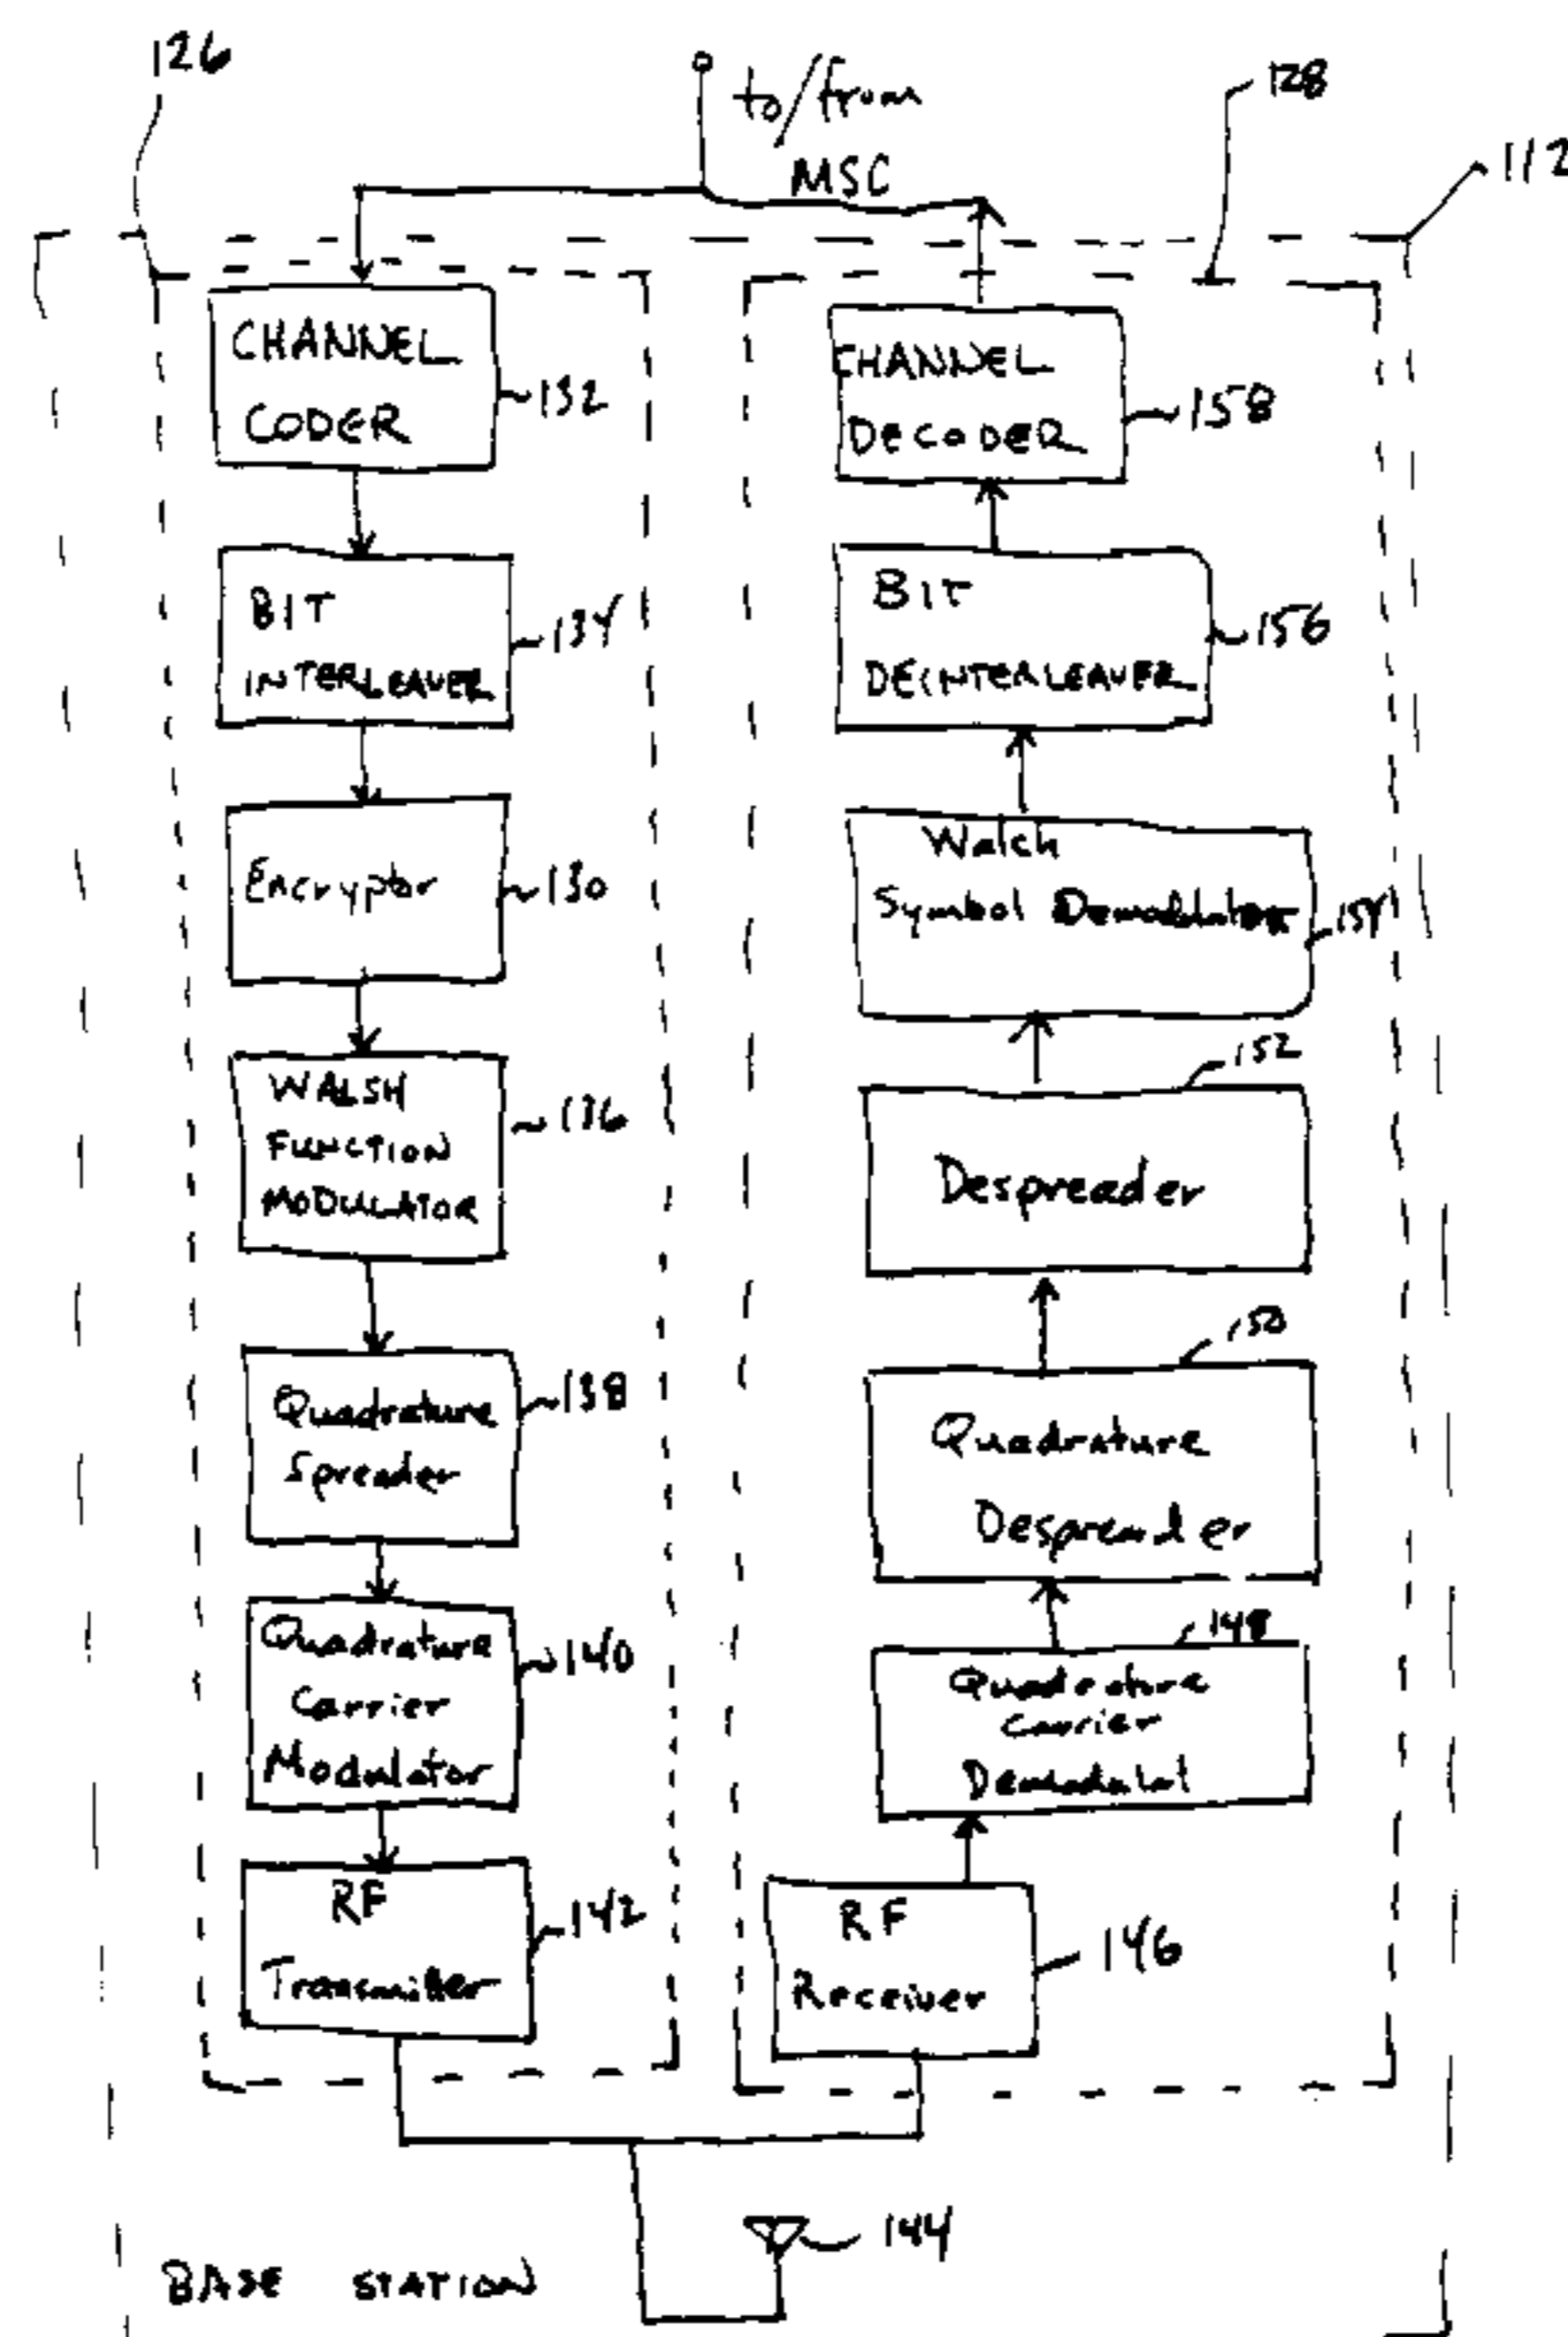 126
to/from
MSC
128
112
CHANNEL
CODER
132
BIT
INTERLEAVER
134
Encryptor
130
WALSH
FUNCTION
MODULATOR
136
Quadrature
Spreader
138
Quadrature
Carrier
Modulator
140
RF
Transmitter
142
CHANNEL
DECODER
158
BIT
DEINTERLEAVER
156
Walch
Symbol Demodulator
154
152
Despreader
150
Quadrature
Despreader
148
Quadrature
Carrier
Demodulat
RF
Receiver
146
144
BASE STATION